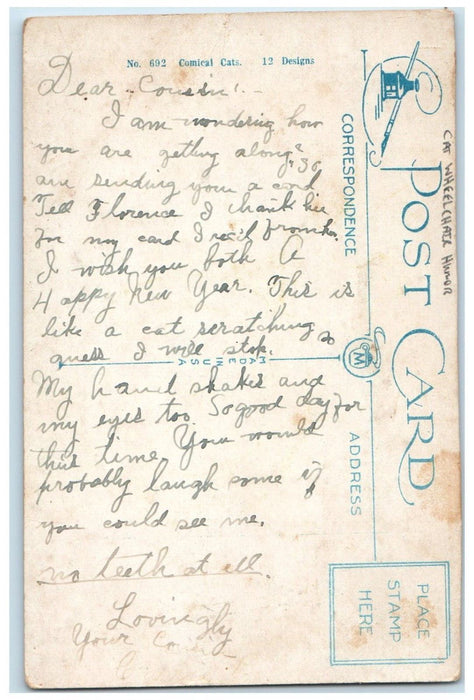 No. 692 Comical Cats. 12 Designs
Dear Cousin:-
I am wondering how
you are getting along? So
am sending you a card
Tell Florence I thank her
for my card I rec'd from her.
I wish you both A
Happy New Year. This is
like a cat scratching so
guess I will stop.
MADE IN U S A
My hand shakes and
my eyes too. So good day for
this time. You would
probably laugh some if
you could see me.
no teeth at all.
Lovingly
Your Cousin
CORRESPONDENCE
ADDRESS
POST CARD
M
CAT WHEELCHAIR HUMOR
PLACE
STAMP
HERE